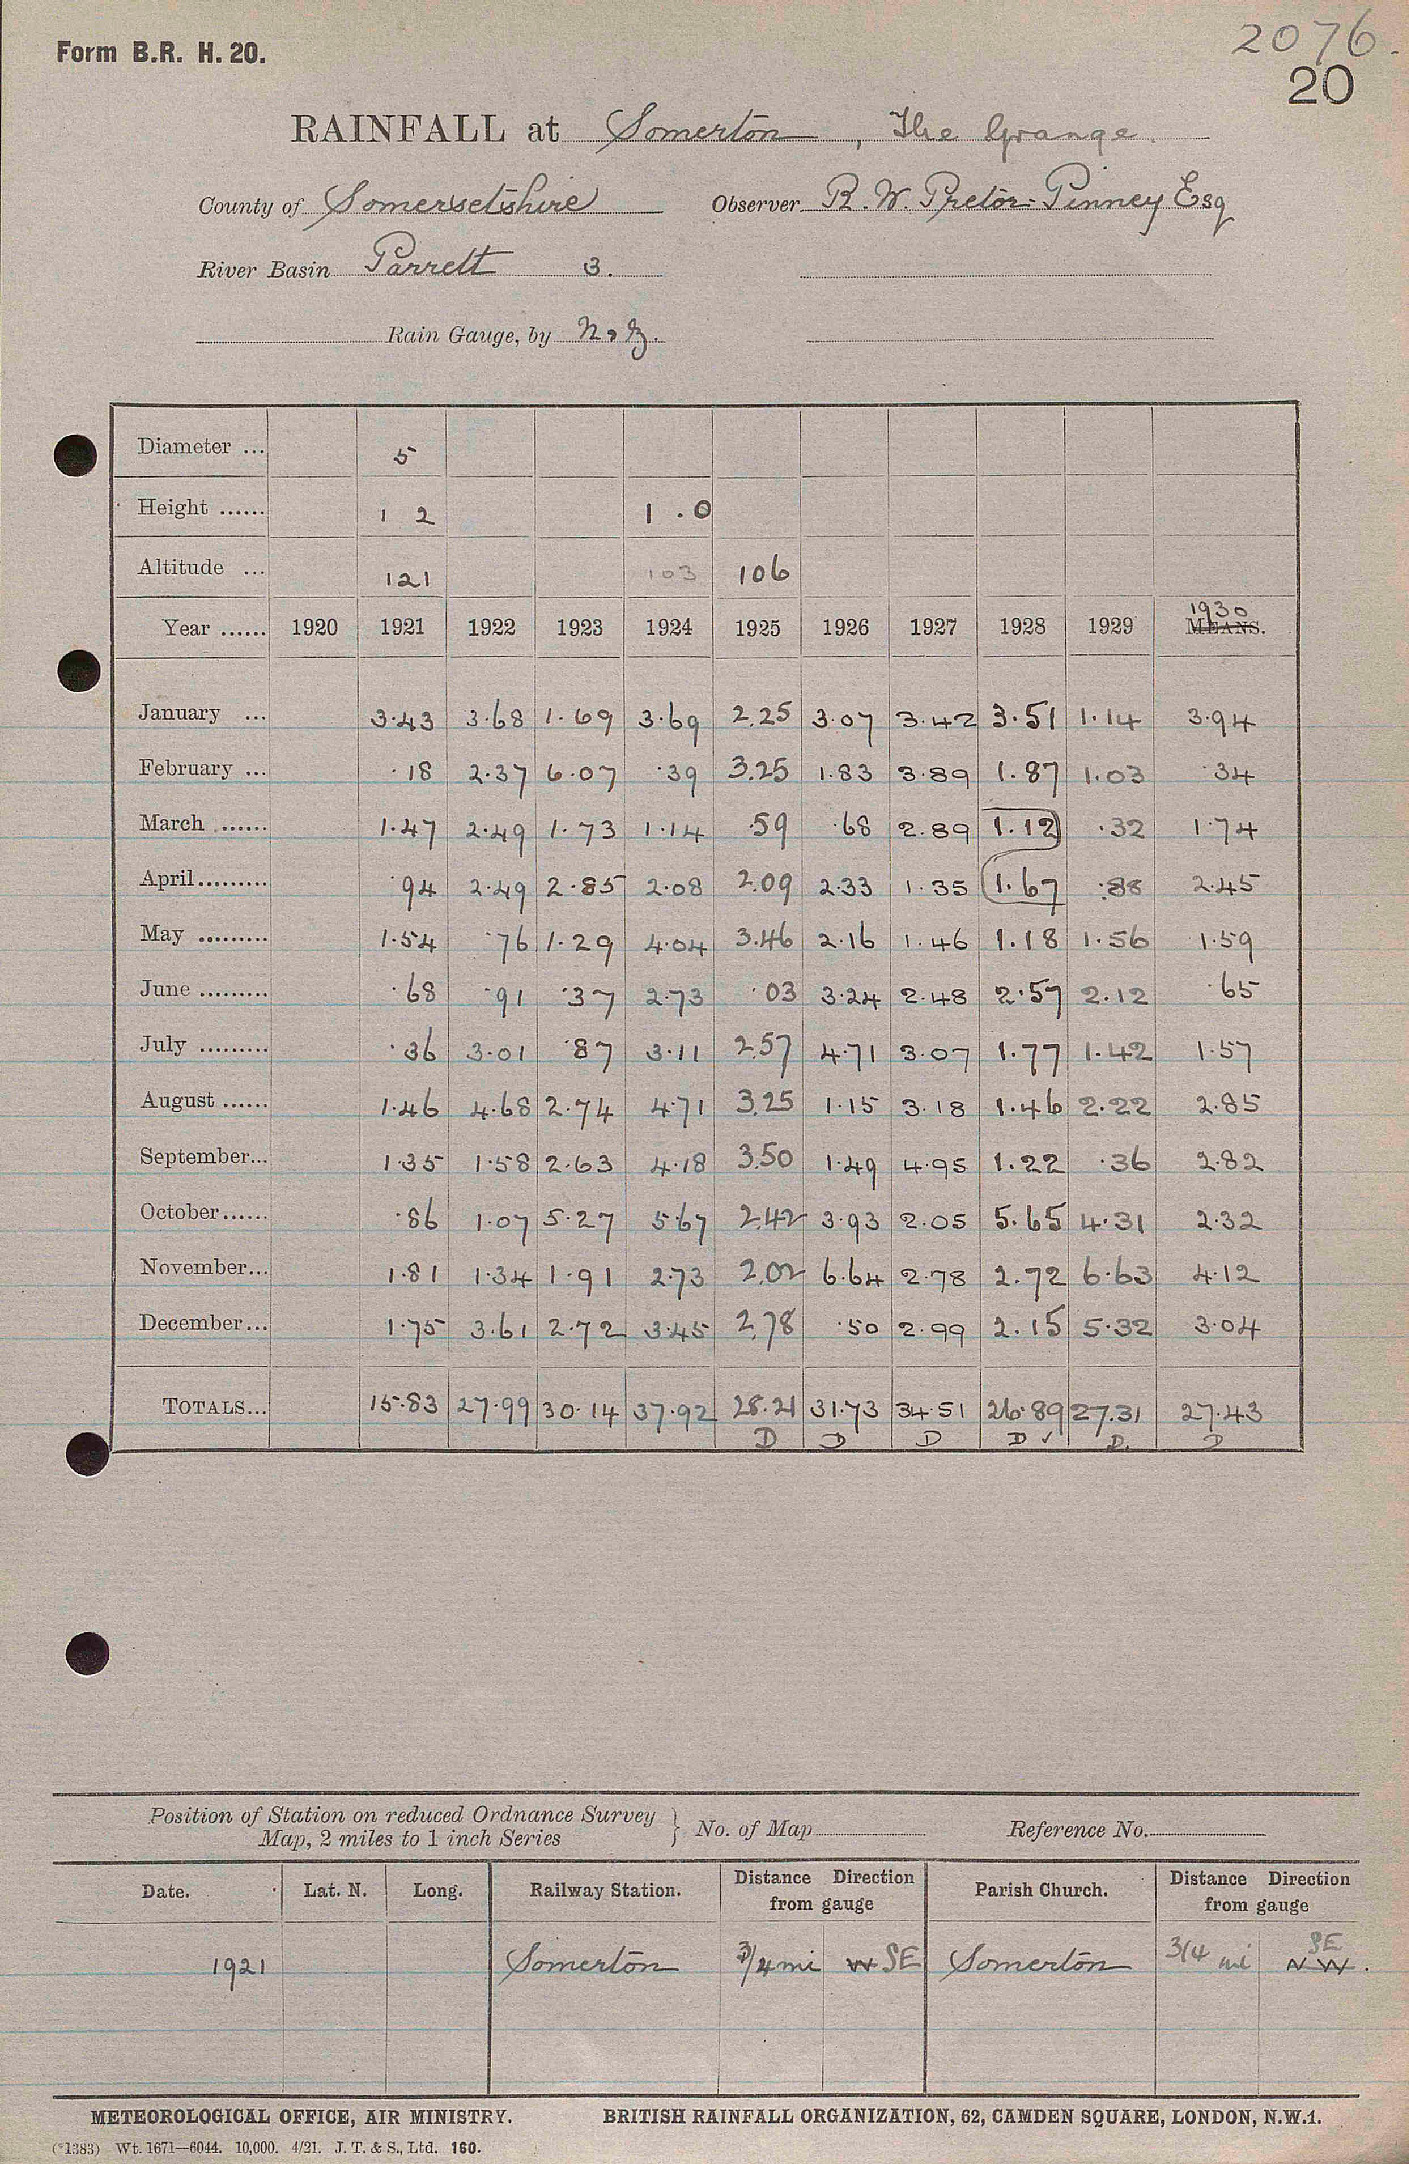 2076.
Form B.R. H. 20.
20
RAINFALL at Somerton, The Grange.
County of Somersetshire Observer R. W. Pretor-Pinney Esq
River Basin Parrett 3.
Rain Gauge, by N & Z.
Diameter ... 5
Height ...... 1 2 1.0
Altitude ... 121 103 106
Year ...... 1920 1921 1922 1923 1924 1925 1926 1927 1928 1929 1930 MEANS.
January ... 3.43 3.68 1.69 3.69 2.25 3.07 3.42 3.51 1.14 3.94
February ... .18 2.37 6.07 .39 3.25 1.83 3.89 1.87 1.03 .34
March ...... 1.47 2.49 1.73 1.14 .59 .68 2.89 1.12 .32 1.74
April......... .94 2.49 2.85 2.08 2.09 2.33 1.35 1.67 .88 2.45
May ......... 1.54 .76 1.29 4.04 3.46 2.16 1.46 1.18 1.56 1.59
June ......... .68 .91 .37 2.73 .03 3.24 2.48 2.57 2.12 .65
July ......... .36 3.01 .87 3.11 2.57 4.71 3.07 1.77 1.42 1.57
August ...... 1.46 4.68 2.74 4.71 3.25 1.15 3.18 1.46 2.22 2.85
September... 1.35 1.58 2.63 4.18 3.50 1.49 4.95 1.22 .36 2.82
October...... .86 1.07 5.27 5.67 2.42 3.93 2.05 5.65 4.31 2.32
November... 1.81 1.34 1.91 2.73 2.02 6.64 2.78 2.72 6.63 4.12
December... 1.75 3.61 2.72 3.45 2.78 .50 2.99 2.15 5.32 3.04
TOTALS... 15.83 27.99 30.14 37.92 28.21 31.73 34.51 26.89 27.31 27.43
D D D D ✓ D. D
Position of Station on reduced Ordnance Survey
Map, 2 miles to 1 inch Series } No. of Map Reference No.
Date. Lat. N. Long. Railway Station. Distance Direction from gauge Parish Church. Distance Direction from gauge
1921 Somerton 3/4 mi W SE Somerton 3/4 mi SE N W.
METEOROLOGICAL OFFICE, AIR MINISTRY. BRITISH RAINFALL ORGANIZATION, 62, CAMDEN SQUARE, LONDON, N.W.1.
(*1383) Wt. 1671—6044. 10,000. 4/21. J. T. & S., Ltd. 160.